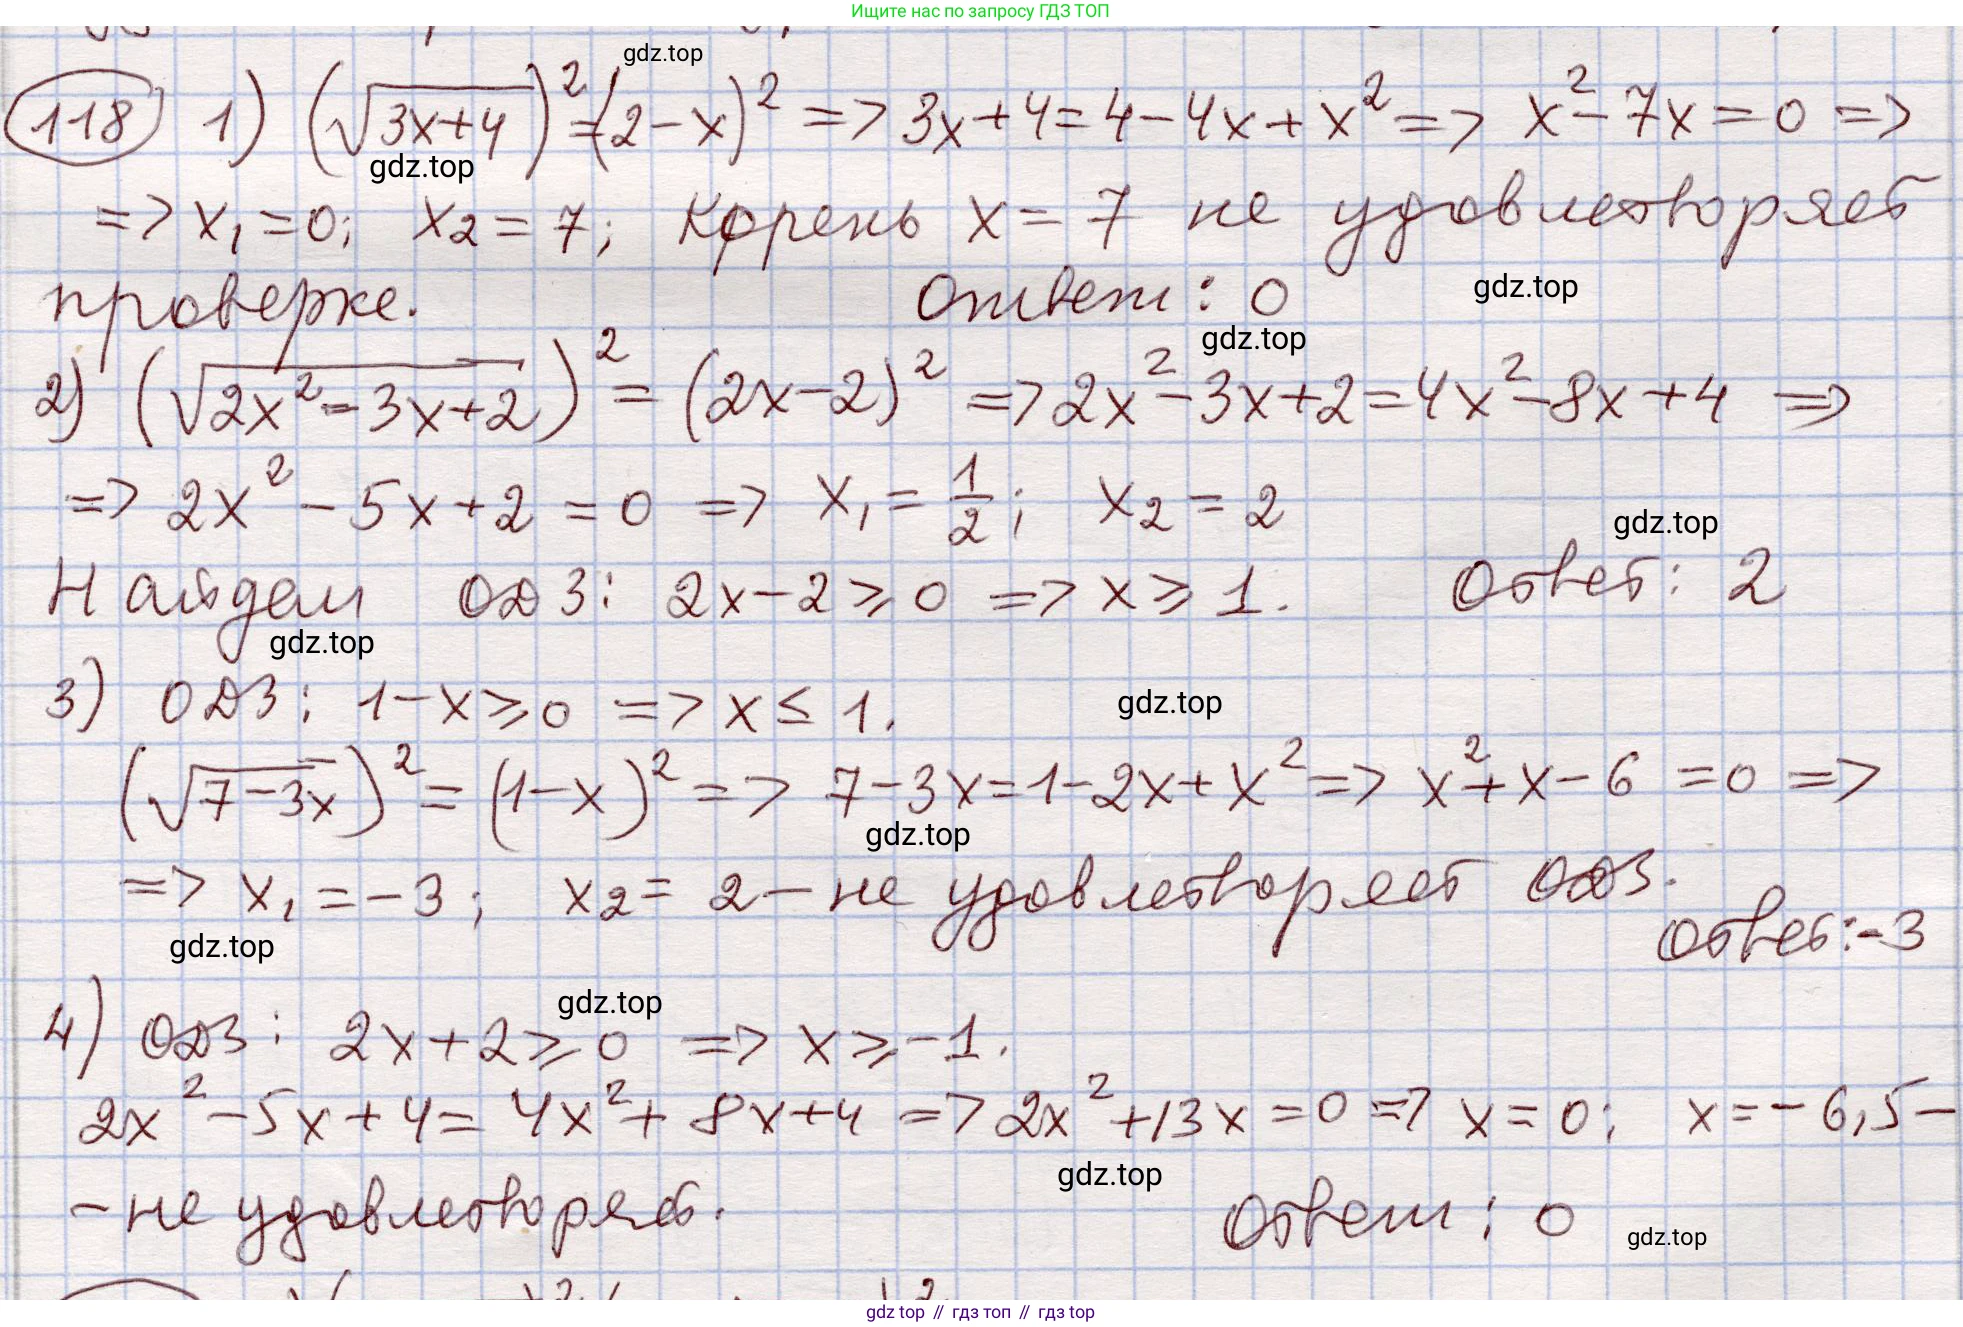 Ищите нас по запросу ГДЗ ТОП
gdz.top
118 1) (√(3x+4))² = (2-x)² => 3x+4=4-4x+x² => x²-7x=0 =>
gdz.top
=> x₁=0; x₂=7; корень x=7 не удовлетворяет
проверке. Ответ: 0
gdz.top
gdz.top
2) (√(2x²-3x+2))² = (2x-2)² => 2x²-3x+2=4x²-8x+4 =>
=> 2x²-5x+2=0 => x₁=1/2; x₂=2
gdz.top
Найдем ОДЗ: 2x-2≥0 => x≥1. Ответ: 2
gdz.top
3) ОДЗ: 1-x≥0 => x≤1.
gdz.top
(√(7-3x))² = (1-x)² => 7-3x=1-2x+x² => x²+x-6=0 =>
gdz.top
=> x₁=-3; x₂=2-не удовлетворяет ОДЗ.
Ответ:-3
gdz.top
gdz.top
4) ОДЗ: 2x+2≥0 => x≥-1.
2x²-5x+4=4x²+8x+4 => 2x²+13x=0 => x=0; x=-6,5-
gdz.top
-не удовлетворяет. Ответ: 0
gdz.top
gdz top // гдз топ // гдз top